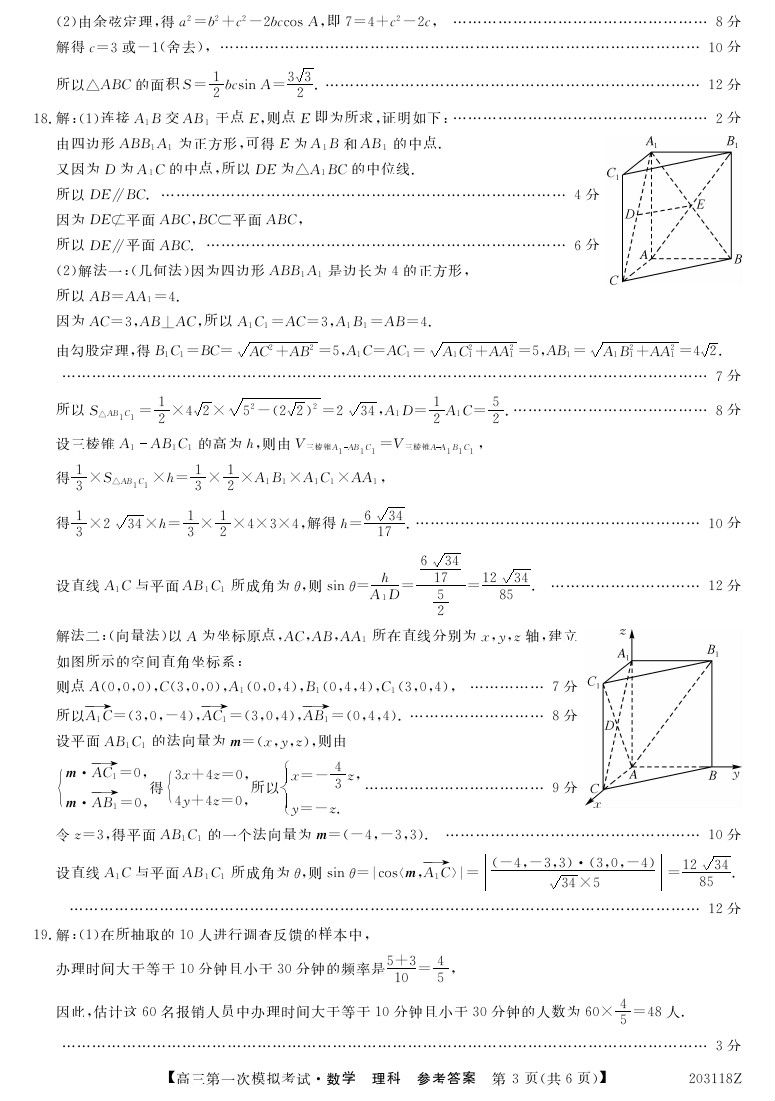 (2)由余弦定理,得 a²=b²+c²-2bccos A,即 7=4+c²-2c, …… 8 分
解得 c=3 或-1(舍去), …… 10 分
所以△ABC 的面积 S=\frac{1}{2}bcsin A=\frac{3\sqrt{3}}{2}. …… 12 分
18. 解:(1)连接 A₁B 交 AB₁ 于点 E,则点 E 即为所求,证明如下: …… 2 分
由四边形 ABB₁A₁ 为正方形,可得 E 为 A₁B 和 AB₁ 的中点.
又因为 D 为 A₁C 的中点,所以 DE 为△A₁BC 的中位线.
所以 DE∥BC. …… 4 分
因为 DE⊄平面 ABC,BC⊂平面 ABC,
所以 DE∥平面 ABC. …… 6 分
A₁ B₁ C₁ D E A B C
(2)解法一:(几何法)因为四边形 ABB₁A₁ 是边长为 4 的正方形,
所以 AB=AA₁=4.
因为 AC=3,AB⊥AC,所以 A₁C₁=AC=3,A₁B₁=AB=4.
由勾股定理,得 B₁C₁=BC=\sqrt{AC²+AB²}=5,A₁C=AC₁=\sqrt{A₁C₁²+AA₁²}=5,AB₁=\sqrt{A₁B₁²+AA₁²}=4\sqrt{2}.
…… 7 分
所以 S_{△AB₁C₁}=\frac{1}{2}×4\sqrt{2}×\sqrt{5²-(2\sqrt{2})²}=2\sqrt{34},A₁D=\frac{1}{2}A₁C=\frac{5}{2}. …… 8 分
设三棱锥 A₁-AB₁C₁ 的高为 h,则由 V_{三棱锥A₁-AB₁C₁}=V_{三棱锥A-A₁B₁C₁},
得\frac{1}{3}×S_{△AB₁C₁}×h=\frac{1}{3}×\frac{1}{2}×A₁B₁×A₁C₁×AA₁,
得\frac{1}{3}×2\sqrt{34}×h=\frac{1}{3}×\frac{1}{2}×4×3×4,解得 h=\frac{6\sqrt{34}}{17}. …… 10 分
设直线 A₁C 与平面 AB₁C₁ 所成角为 θ,则 sin θ=\frac{h}{A₁D}=\frac{\frac{6\sqrt{34}}{17}}{\frac{5}{2}}=\frac{12\sqrt{34}}{85}. …… 12 分
解法二:(向量法)以 A 为坐标原点,AC,AB,AA₁ 所在直线分别为 x,y,z 轴,建立
如图所示的空间直角坐标系:
则点 A(0,0,0),C(3,0,0),A₁(0,0,4),B₁(0,4,4),C₁(3,0,4), …… 7 分
所以\overrightarrow{A₁C}=(3,0,-4),\overrightarrow{AC₁}=(3,0,4),\overrightarrow{AB₁}=(0,4,4). …… 8 分
设平面 AB₁C₁ 的法向量为 m=(x,y,z),则由
{m·\overrightarrow{AC₁}=0, m·\overrightarrow{AB₁}=0, 得{3x+4z=0, 4y+4z=0, 所以{x=-\frac{4}{3}z, y=-z. …… 9 分
z A₁ B₁ C₁ D A B y C x
令 z=3,得平面 AB₁C₁ 的一个法向量为 m=(-4,-3,3). …… 10 分
设直线 A₁C 与平面 AB₁C₁ 所成角为 θ,则 sin θ=|cos⟨m,\overrightarrow{A₁C}⟩|=|\frac{(-4,-3,3)·(3,0,-4)}{\sqrt{34}×5}|=\frac{12\sqrt{34}}{85}.
…… 12 分
19. 解:(1)在所抽取的 10 人进行调查反馈的样本中,
办理时间大于等于 10 分钟且小于 30 分钟的频率是\frac{5+3}{10}=\frac{4}{5},
因此,估计这 60 名报销人员中办理时间大于等于 10 分钟且小于 30 分钟的人数为 60×\frac{4}{5}=48 人.
…… 3 分
【高三第一次模拟考试·数学 理科 参考答案 第 3 页(共 6 页)】 203118Z